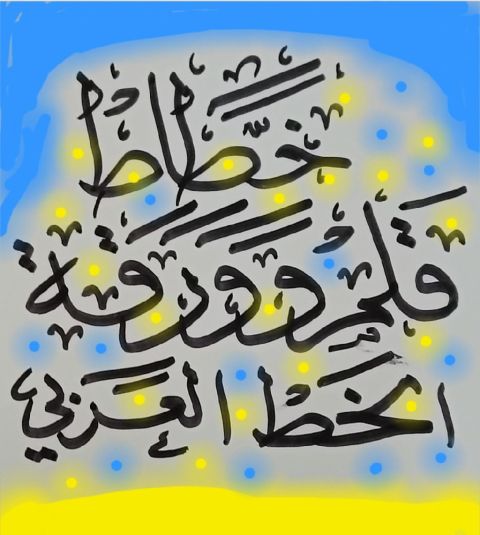 خطّاط
قلم و ورقة
الخط العربي